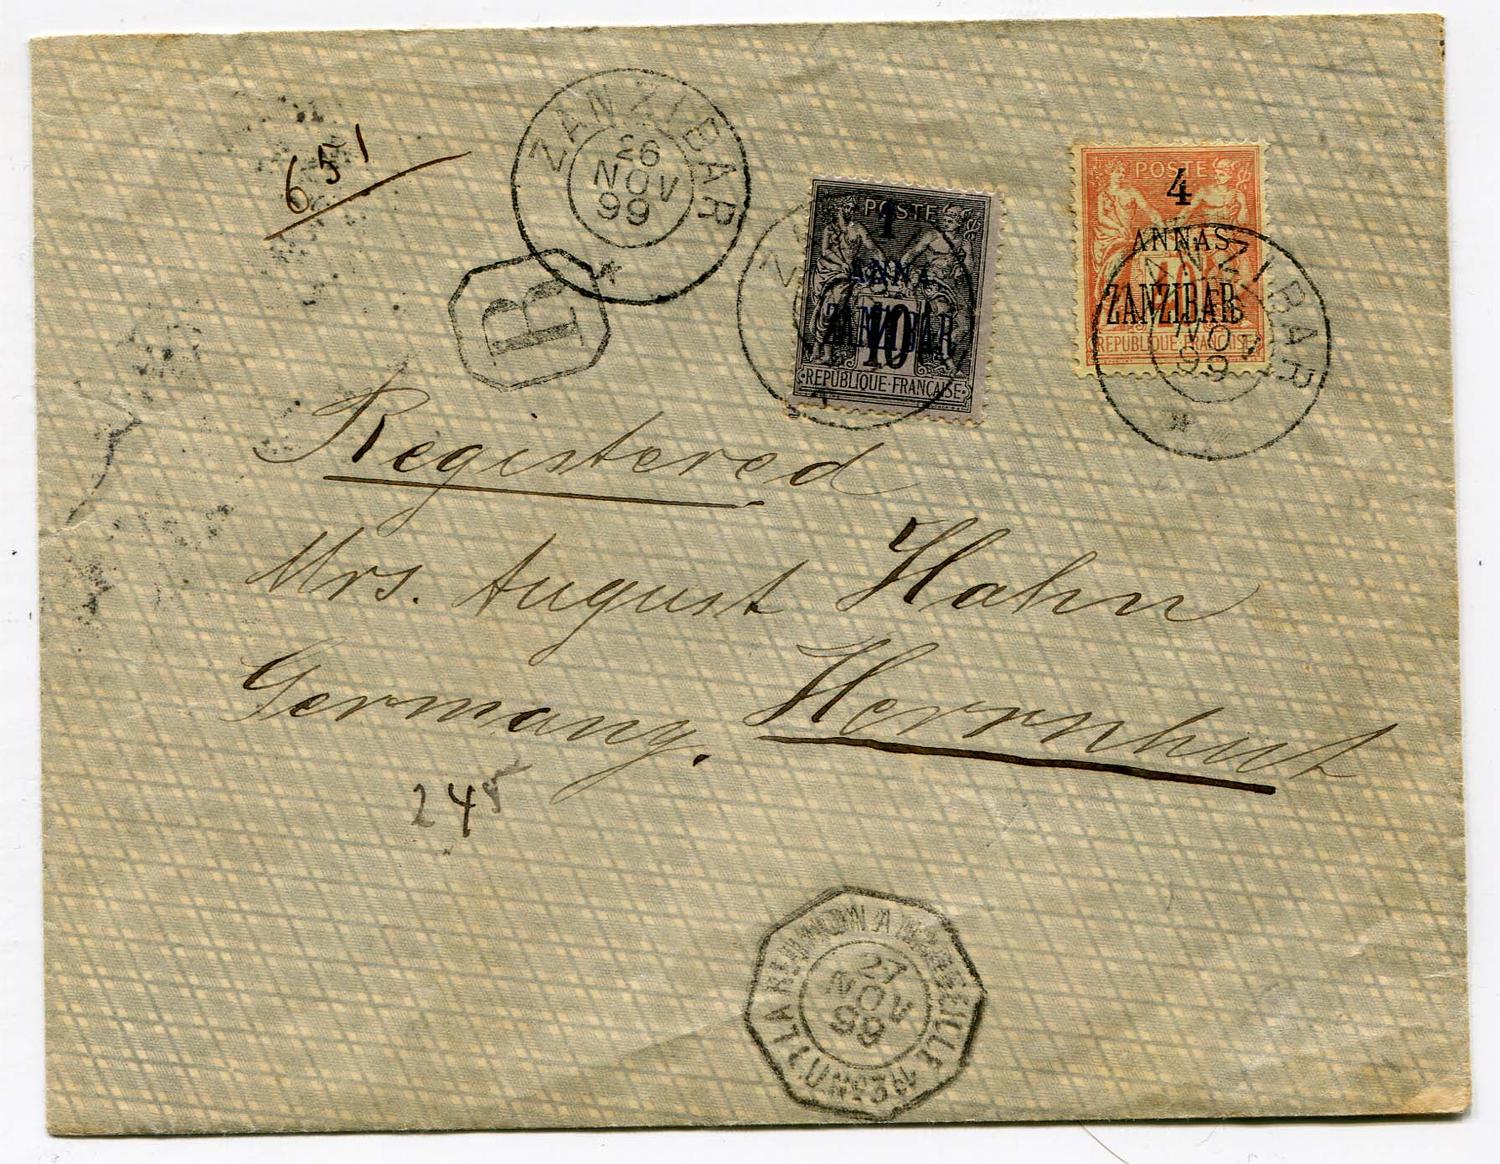 651
ZANZIBAR
26
NOV
99
R
POSTE
1
ANNA
ZANZIBAR
10
RÉPUBLIQUE·FRANÇAISE
POSTE
4
ANNAS
ZANZIBAR
40
RÉPUBLIQUE FRANÇAISE
ZANZIBAR
NOV
99
Registered
Mrs. August Hahn
Germany. Herrnhut
245
LA REUNION A MARSEILLE
27
NOV
99